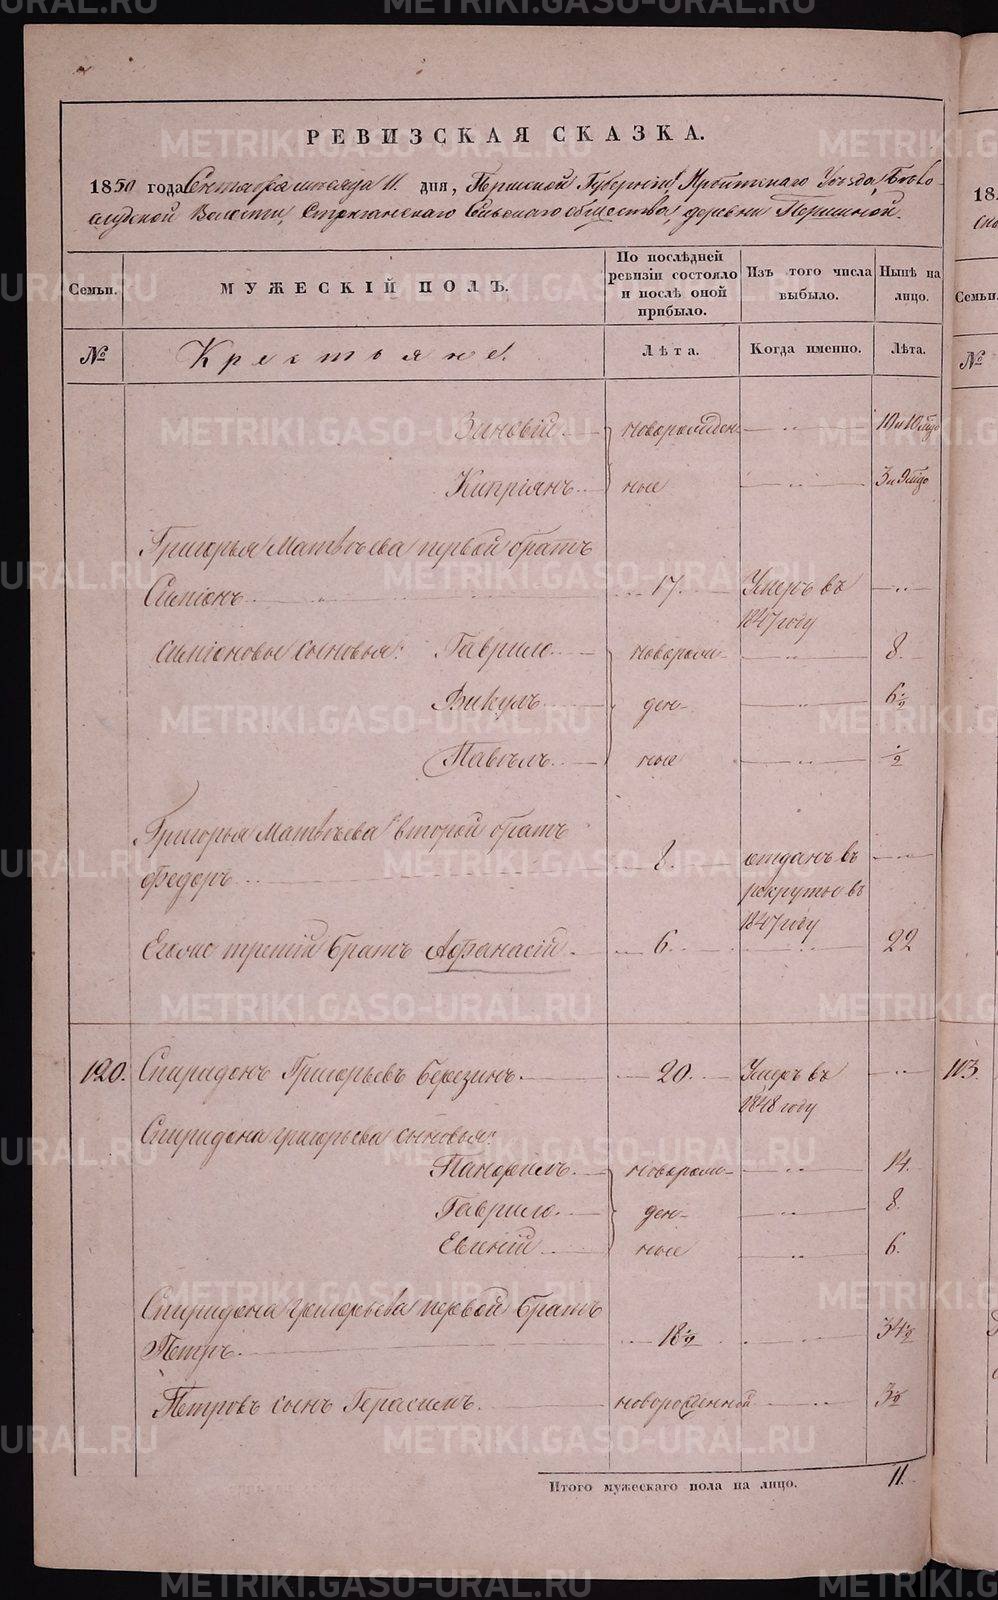 РЕВИЗСКАЯ СКАЗКА.
1850 года Сентября месяца 11. дня, Пермской Губерніи Ирбитскаго Уѣзда, Бѣло-
слудской Волости, Стриганскаго Сельскаго общества, деревни Першиной.
Семьи. МУЖЕСКІЙ ПОЛЪ. По послѣдней ревизіи состояло и послѣ оной прибыло. Изъ того числа выбыло. Нынѣ на лицо. Семьи.
№ Крестьяне. Лѣта. Когда именно. Лѣта. №
Зиновій новорожден-
Кипріянъ ные
Григорья Матвѣева первой братъ
Симіонъ 17. Умеръ въ
1847 году
Симіоновы сыновья: Гаврило новорож- 8.
Викулъ ден- 6 ½
Павелъ ные ½
Григорья Матвѣева второй братъ
Федоръ 8. отданъ въ
рекруты въ
1847 году
Егоже третій братъ Афанасій 6. 22
120. Спиридонъ Григорьевъ Березинъ 20. Умеръ въ 113.
1848 году
Спиридона григорьева сыновья:
Панфилъ новорож- 14.
Гаврило ден- 8.
Евгеній ные 6.
Спиридона григорьева первой братъ
Петръ 18 ½ 34 ½
Петровъ сынъ Герасимъ новорожденной 3 ½
Итого мужескаго пола на лицо. 11.
METRIKI.GASO-URAL.RU